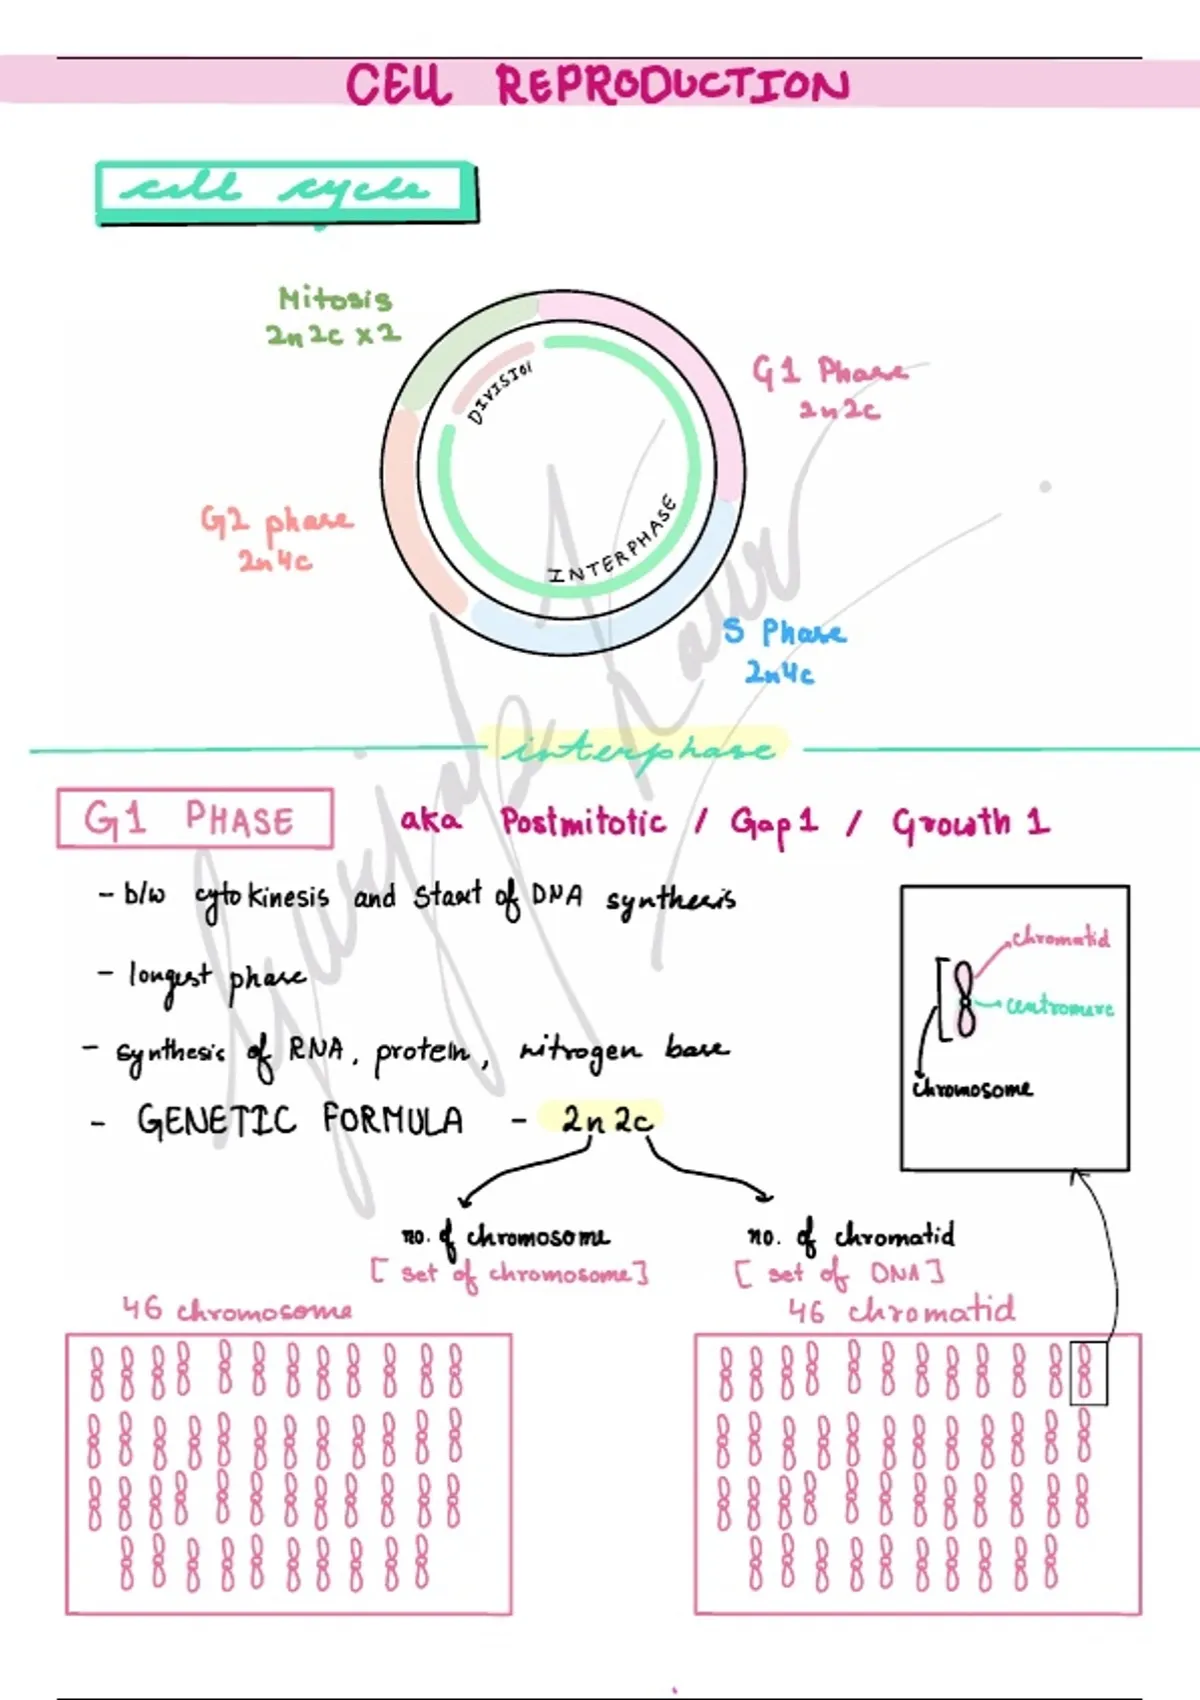 CELL REPRODUCTION
cell cycle
Mitosis
2n2c x2
G1 Phase
2n2c
DIVISIOn
INTERPHASE
G2 phase
2n4c
S Phase
2n4c
interphase
G1 PHASE
aka Postmitotic / Gap1 / Growth 1
- b/w cytokinesis and Start of DNA synthesis
- longest phase
- synthesis of RNA, protein, nitrogen base
- GENETIC FORMULA - 2n2c
chromatid
centromere
chromosome
no. of chromosome
[ set of chromosome]
46 chromosome
no. of chromatid
[ set of DNA]
46 chromatid